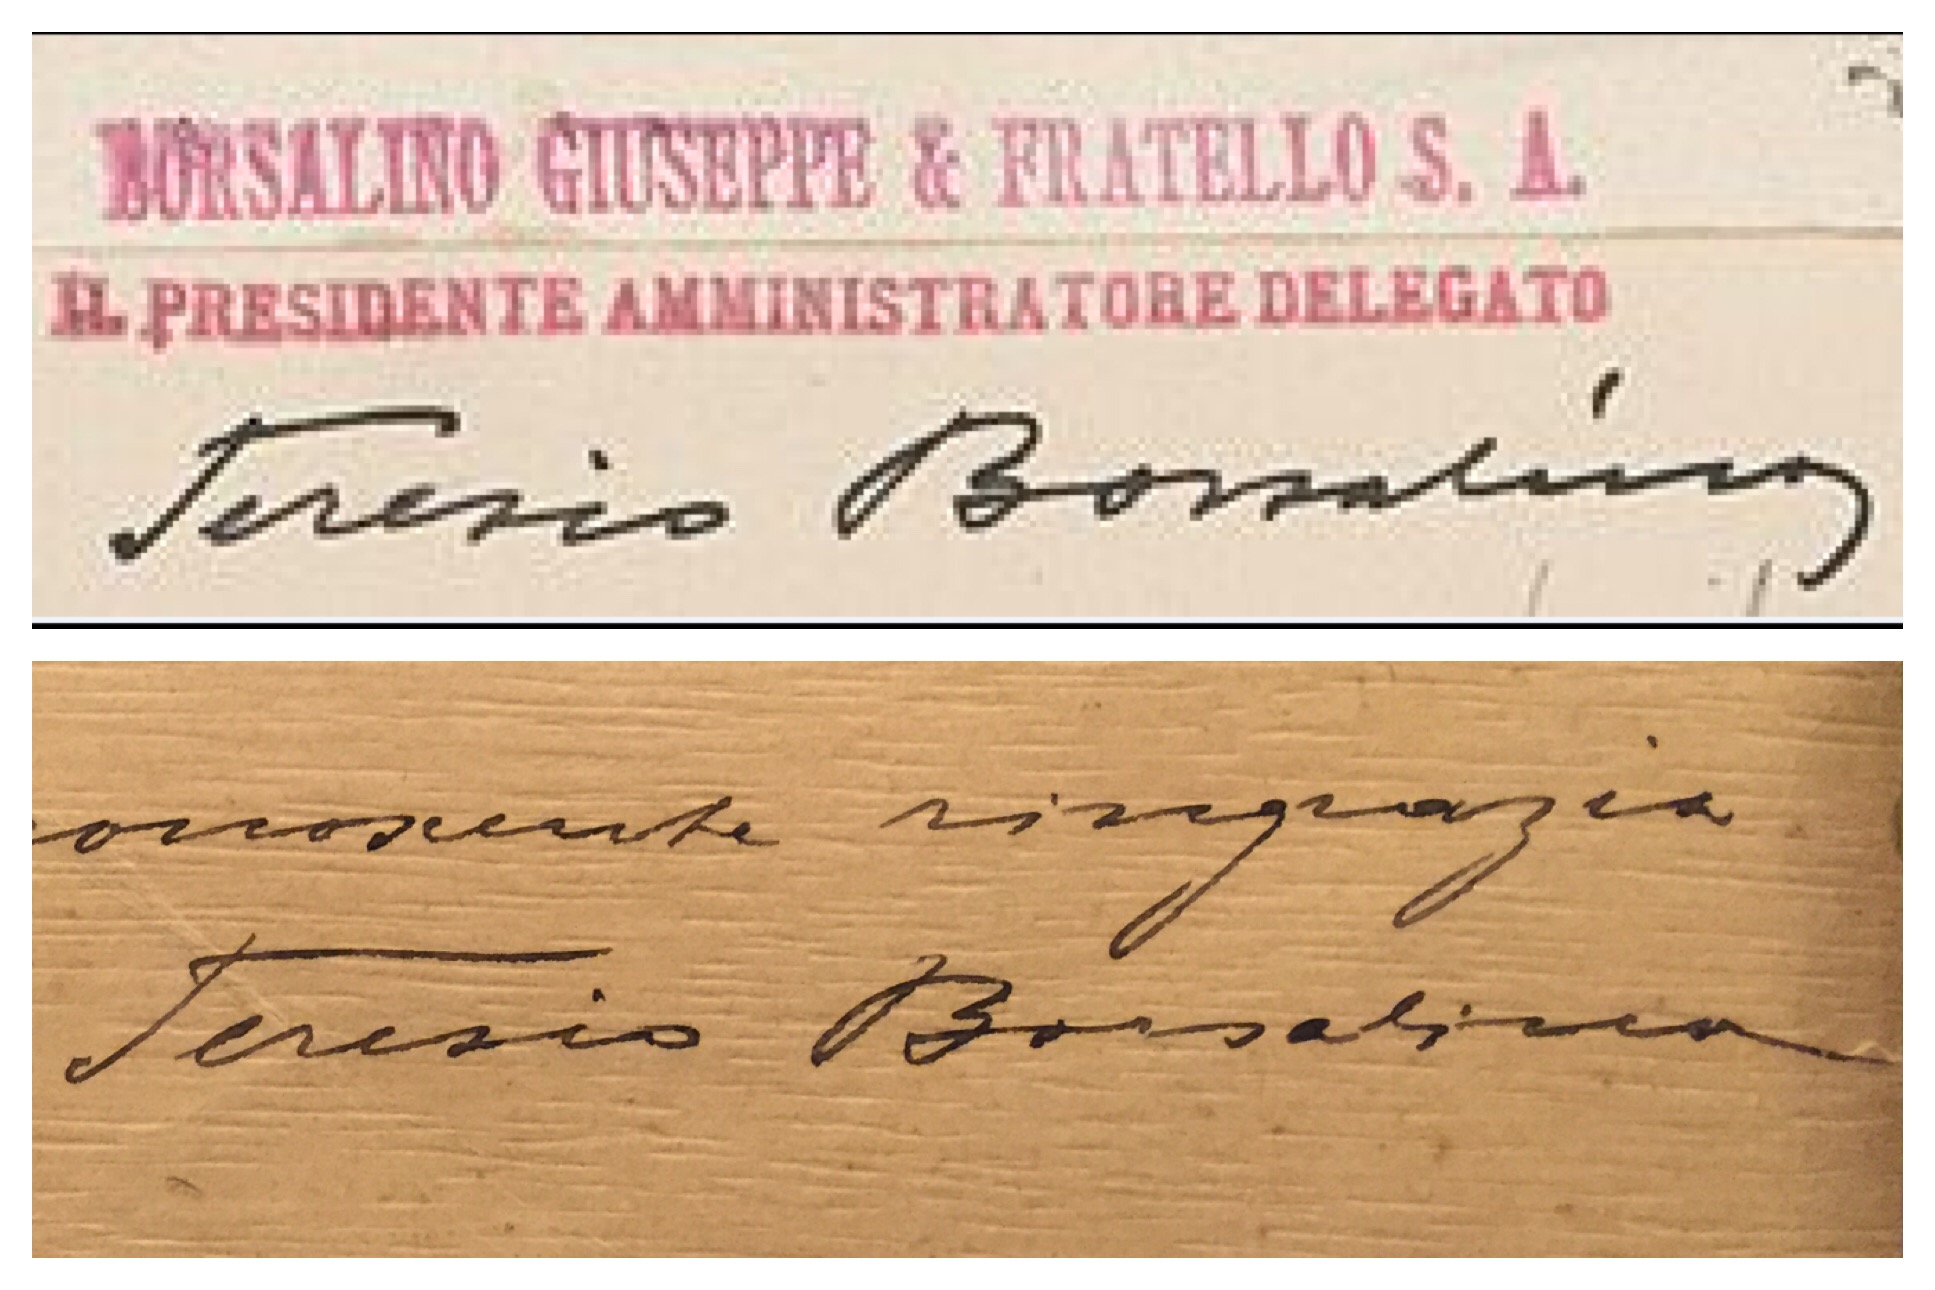 BORSALINO GIUSEPPE & FRATELLO S. A.
IL PRESIDENTE AMMINISTRATORE DELEGATO
Teresio Borsalino
conoscente ringrazia
Teresio Borsalino